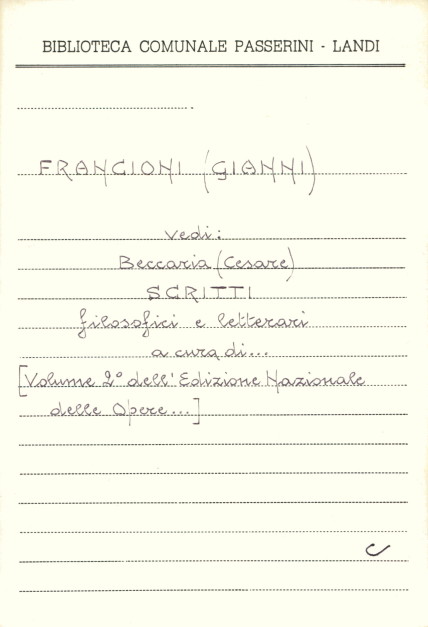 BIBLIOTECA COMUNALE PASSERINI - LANDI
FRANCIONI (GIANNI)
vedi:
Beccaria (Cesare)
SCRITTI
filosofici e letterari
a cura di...
[Volume 2° dell'Edizione Nazionale
delle Opere...]
C